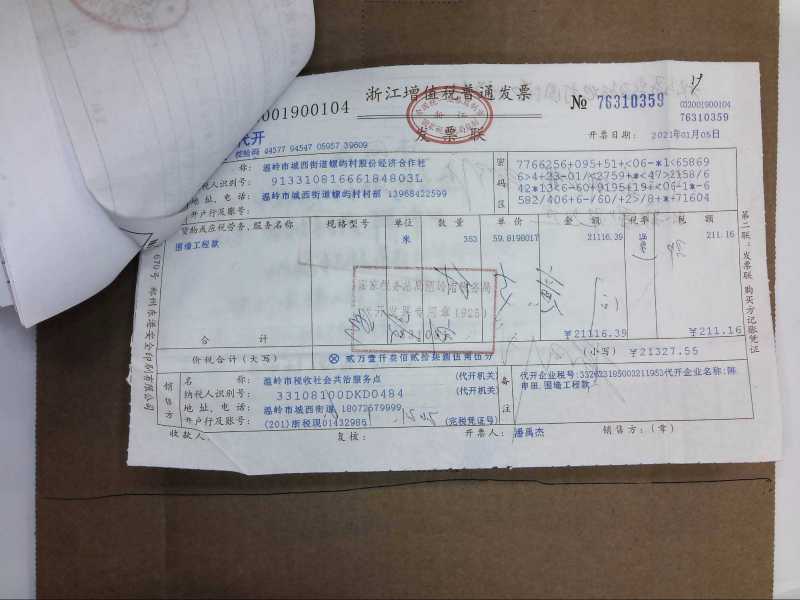 浙江增值税普通发票
发票联
001900104
№ 76310359
033001900104
76310359
代开
校验码 44577 94547 05957 39609
开票日期: 2021年01月05日
温岭市城西街道螺屿村股份经济合作社
纳税人识别号: 91331081666184803L
地址、电话: 温岭市城西街道螺屿村村部 13968422599
开户行及账号:
密码区
7766256+095+51+<06-*1<65869
6>4+23-01/<2759+*<47>2158/6
42*13<6-60+9195+19+<06-1*-6
582/406+6-/60/+2>/8+*+71604
货物或应税劳务、服务名称 规格型号 单位 数量 单价 金额 税率 税额
围墙工程款 米 353 59.8198017 21116.39 1% 211.16
合计 ¥21116.39 ¥211.16
价税合计(大写) ⊗ 贰万壹仟叁佰贰拾柒圆伍角伍分 (小写) ¥21327.55
销售方
名称: 温岭市税收社会共治服务点 (代开机关)
纳税人识别号: 33108100DKD0484 (代开机关)
地址、电话: 温岭市城西街道 18072679999
开户行及账号: (201)浙税现01432986 (完税凭证号)
备注
代开企业名称:陈
申田, 围墙工程款
收款人: 复核: 开票人: 潘禹杰 销售方:(章)
第二联:发票联 购买方记账凭证